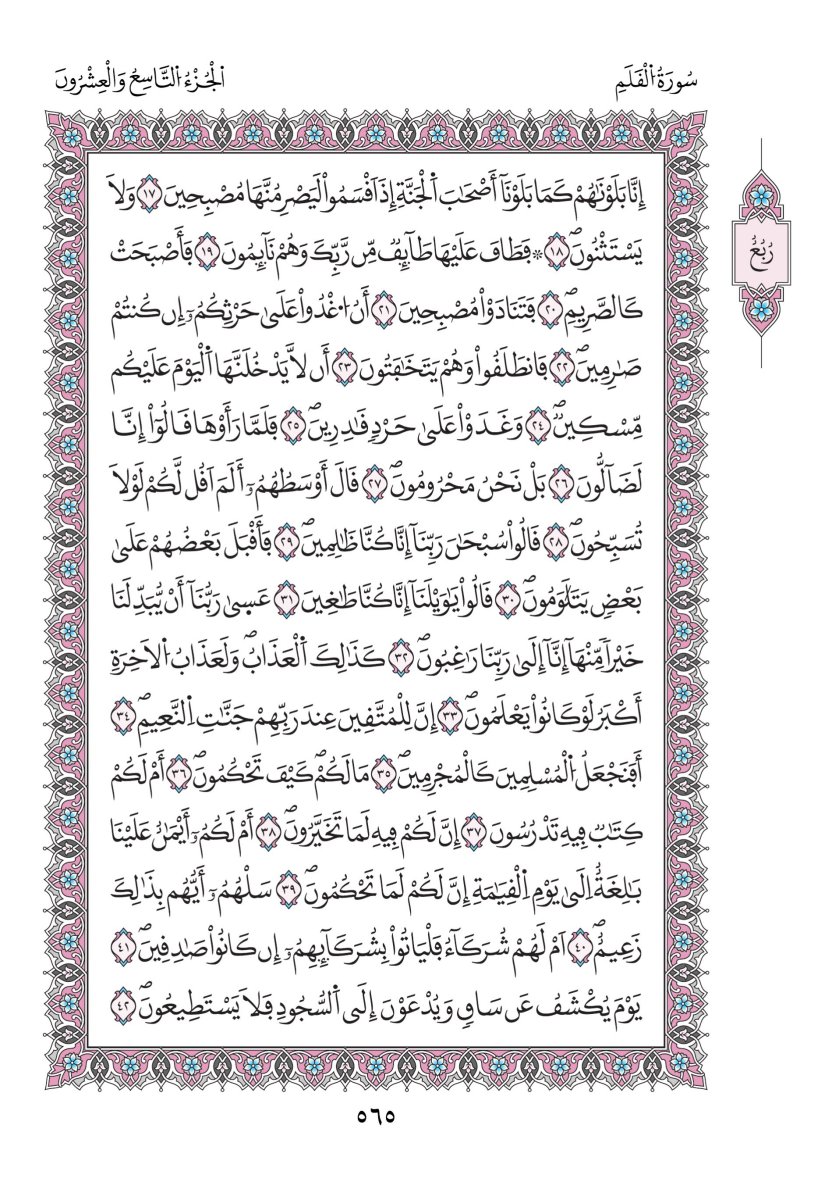 سُورَةُ اُ۬لْقَلَمِ
اُ۬لْجُزْءُ اُ۬لتَّاسِعُ وَالْعِشْرُونَ
إِنَّا بَلَوْنَٰهُمْ كَمَا بَلَوْنَآ أَصْحَٰبَ اَ۬لْجَنَّةِ إِذَ اَقْسَمُواْ لَيَصْرِمُنَّهَا مُصْبِحِينَ ١٧ وَلَا
يَسْتَثْنُونَۖ ١٨ ۞ فَطَافَ عَلَيْهَا طَآئِفٞ مِّن رَّبِّكَ وَهُمْ نَآئِمُونَ ١٩ فَأَصْبَحَتْ
كَالصَّرِيمِۖ ٢٠ فَتَنَادَوْاْ مُصْبِحِينَ ٢١ أَنُ اُ۟غْدُواْ عَلَىٰ حَرْثِكُمُۥٓ إِن كُنتُمْ
صَٰرِمِينَۖ ٢٢ فَانطَلَقُواْ وَهُمْ يَتَخَٰفَتُونَ ٢٣ أَن لَّا يَدْخُلَنَّهَا اَ۬لْيَوْمَ عَلَيْكُم
مِّسْكِينٞۖ ٢٤ وَغَدَوْاْ عَلَىٰ حَرْدٖ قَٰدِرِينَۖ ٢٥ فَلَمَّا رَأَوْهَا قَالُوٓاْ إِنَّا
لَضَآلُّونَ ٢٦ بَلْ نَحْنُ مَحْرُومُونَۖ ٢٧ قَالَ أَوْسَطُهُمُۥٓ أَلَمَ اَقُل لَّكُمْ لَوْلَا
تُسَبِّحُونَۖ ٢٨ قَالُواْ سُبْحَٰنَ رَبِّنَآ إِنَّا كُنَّا ظَٰلِمِينَۖ ٢٩ فَأَقْبَلَ بَعْضُهُمْ عَلَىٰ
بَعْضٖ يَتَلَٰوَمُونَۖ ٣٠ قَالُواْ يَٰوَيْلَنَآ إِنَّا كُنَّا طَٰغِينَ ٣١ عَسىٰ رَبُّنَآ أَنْ يُّبَدِّلَنَا
خَيْراٗ مِّنْهَآ إِنَّآ إِلَىٰ رَبِّنَا رَٰغِبُونَۖ ٣٢ كَذَٰلِكَ اَ۬لْعَذَابُۖ وَلَعَذَابُ اُ۬لَاخِرَةِ
أَكْبَرُ لَوْ كَانُواْ يَعْلَمُونَۖ ٣٣ إِنَّ لِلْمُتَّقِينَ عِندَ رَبِّهِمْ جَنَّٰتِ اِ۬لنَّعِيمِۖ ٣٤
أَفَنَجْعَلُ اُ۬لْمُسْلِمِينَ كَالْمُجْرِمِينَۖ ٣٥ مَا لَكُمْۖ كَيْفَ تَحْكُمُونَۖ ٣٦ أَمْ لَكُمْ
كِتَٰبٞ فِيهِ تَدْرُسُونَ ٣٧ إِنَّ لَكُمْ فِيهِ لَمَا تَخَيَّرُونَۖ ٣٨ أَمْ لَكُمُۥٓ أَيْمَٰنٌ عَلَيْنَا
بَٰلِغَةٌ اِلَىٰ يَوْمِ اِ۬لْقِيَٰمَةِ إِنَّ لَكُمْ لَمَا تَحْكُمُونَۖ ٣٩ سَلْهُمُۥٓ أَيُّهُم بِذَٰلِكَ
زَعِيمٌۖ ٤٠ اَمْ لَهُمْ شُرَكَآءُ فَلْيَاتُواْ بِشُرَكَآئِهِمُۥٓ إِن كَانُواْ صَٰدِقِينَۖ ٤١
يَوْمَ يُكْشَفُ عَن سَاقٖ وَيُدْعَوْنَ إِلَى اَ۬لسُّجُودِ فَلَا يَسْتَطِيعُونَۖ ٤٢
رُبُعُ
٥٦٥